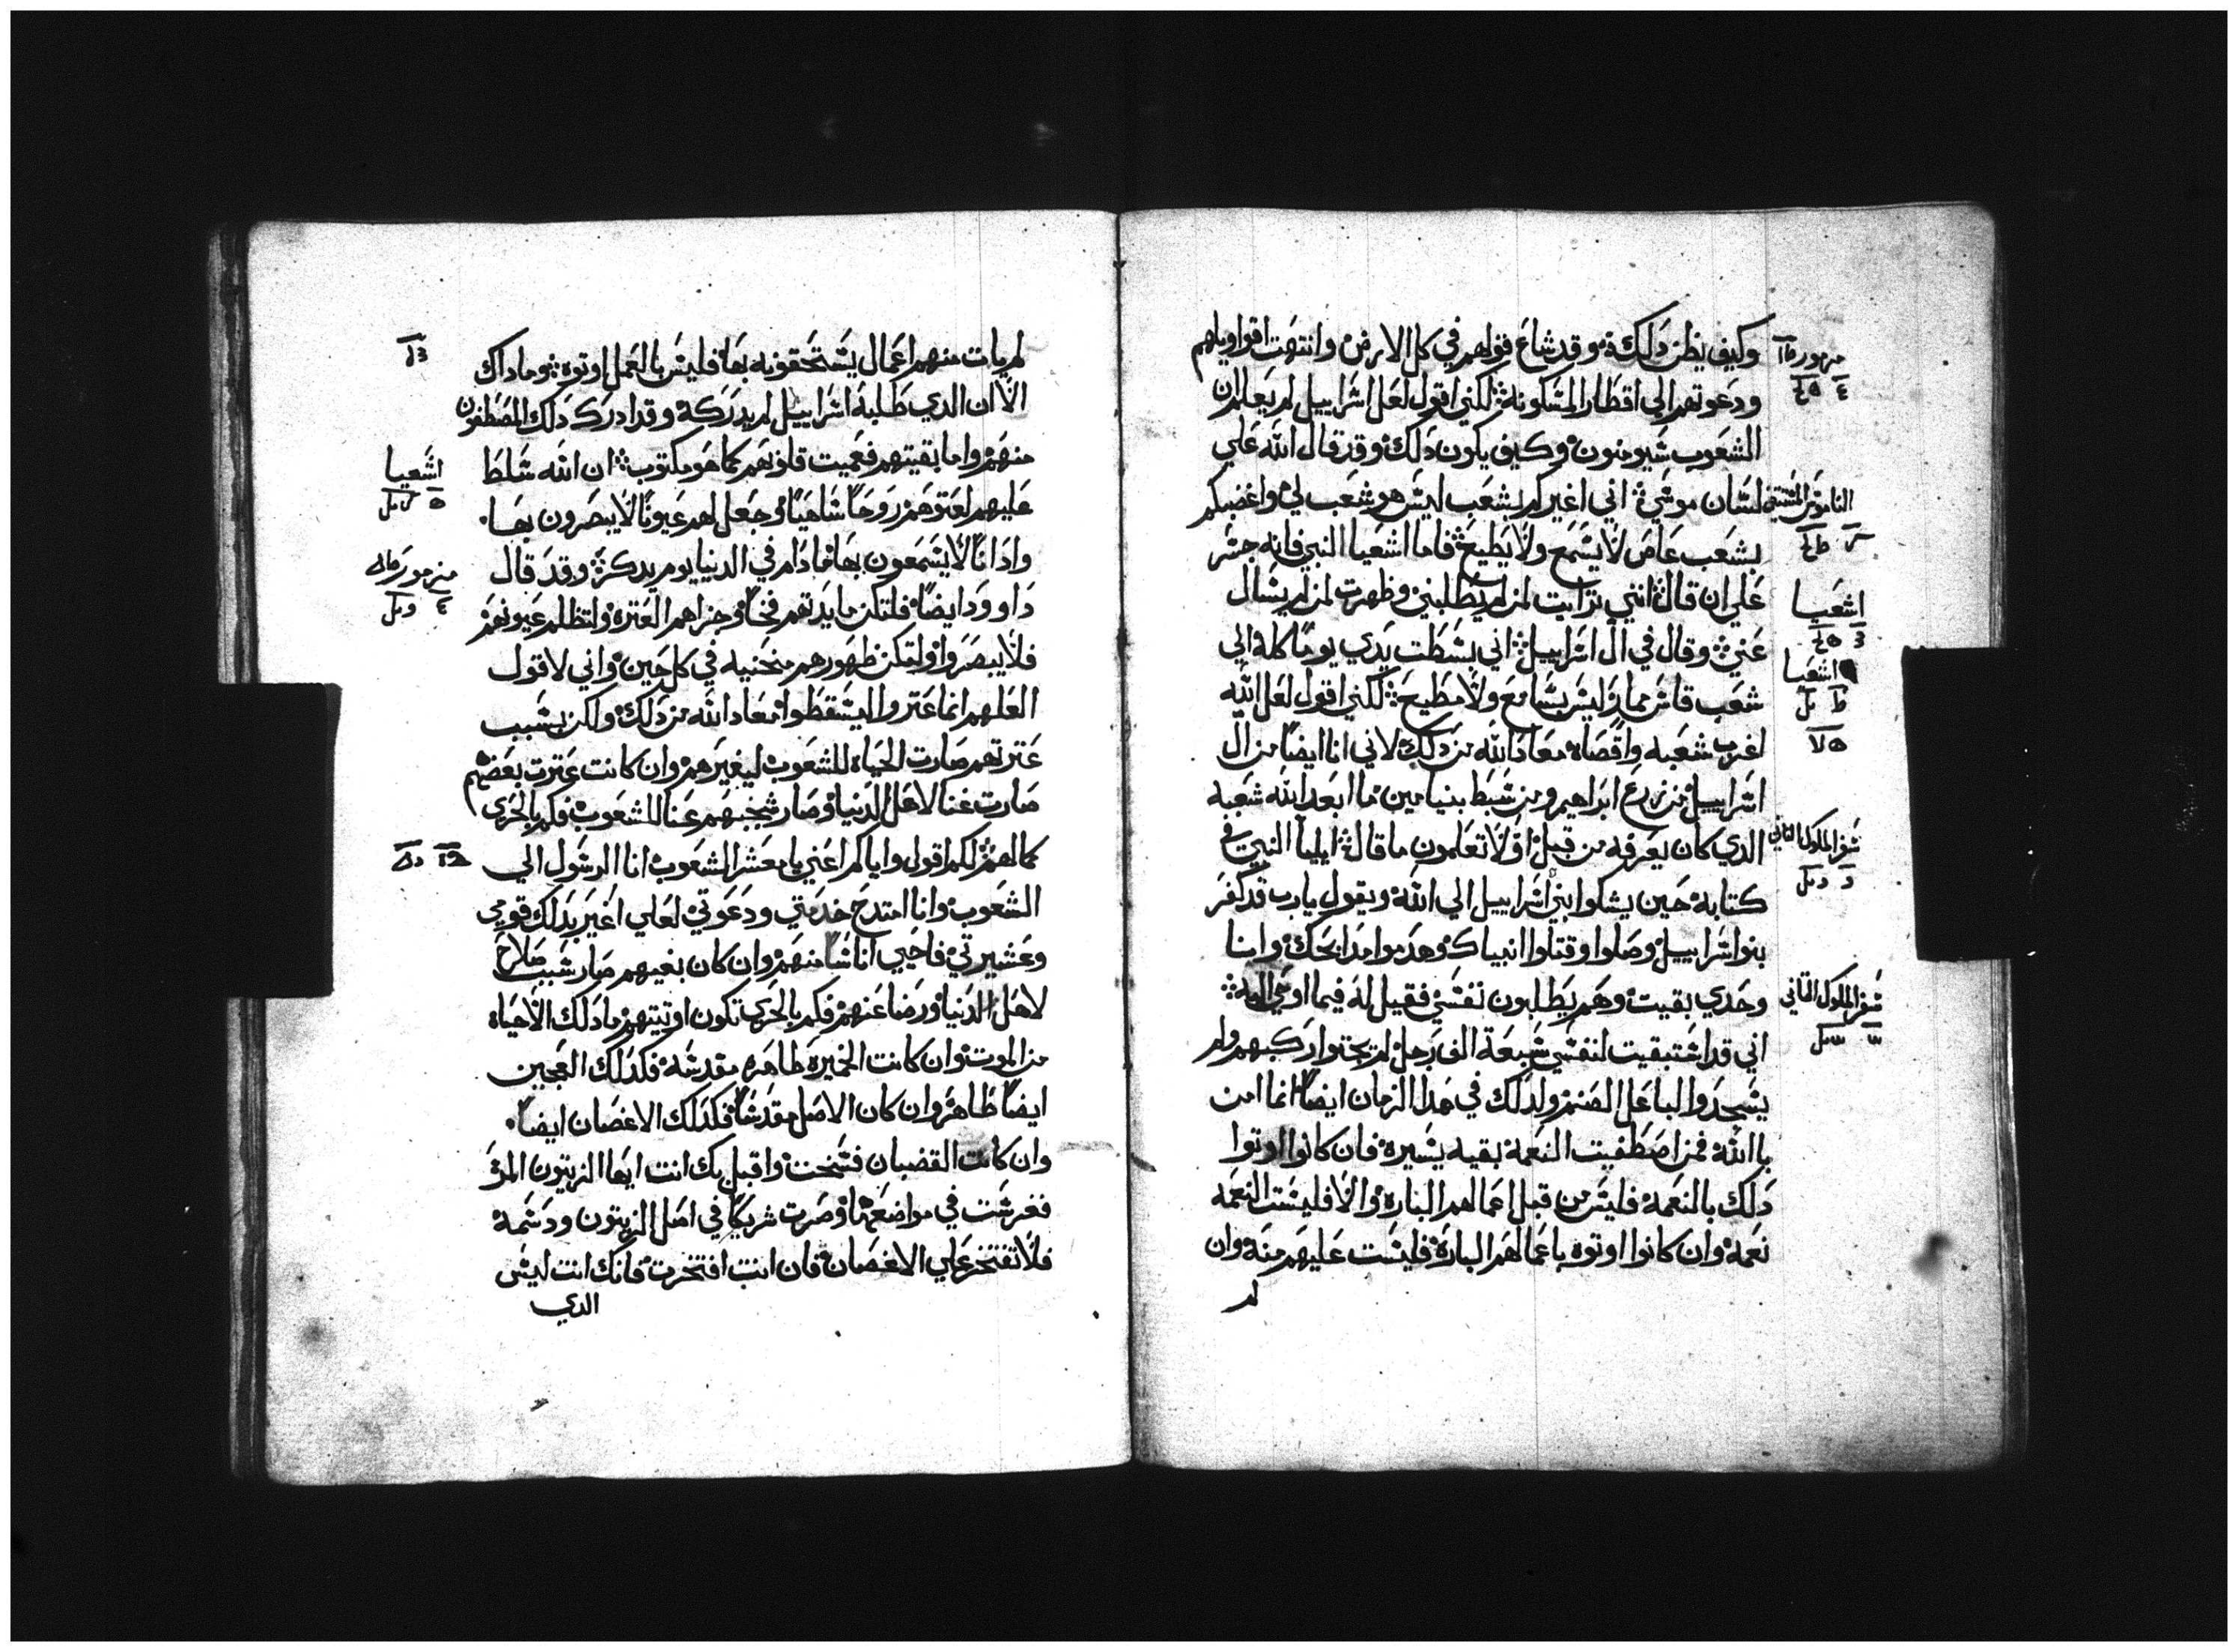 وكيف يظن دلك وقد شاع قولهم في كل الارض وانتهت اقواويلهم
مزمور
ودعوتهم الي اقطار المسكونه لكني اقول لعل اسراييل لم يعلم ان
الشعوب سيومنون وكيف يكون دلك وقد قال الله علي
لسان موسي اني اغيركم بشعب ليس هو شعب لي واغضبكم
الناموس
بشعب عاص لا يسمع ولا يطيع فاما اشعيا النبي فانه جسر
علي ان قال انني ترايت لمن لم يطلبني وظهرت لمن لم يسال
اشعيا
عني وقال في ال اسراييل اني بسطت يدي يوما كله الي
اشعيا
شعب قاس ممار ليس بسامع ولا مطيع لكني اقول لعل الله
اغرب شعبه واقصاه معاد الله من دلك لاني انا ايضا من ال
اسراييل من زرع ابراهيم ومن سبط بنيامين ما ابعد الله شعبه
الدي كان يعرفه من قبل اولا تعلمون ما قال ايليا النبي في
سفر الملوك التاني
كتابه حين يشكوا بني اسراييل الي الله ويقول يارب قد كفر
بنوا اسراييل وصلوا وقتلوا انبياك وهدموا مدابحك وانا
وحدي بقيت وهم يطلبون نفسي فقيل له فيما اوحي اليه
سفر الملوك التاني
اني قد استبقيت لنفسي سبعة الف رجل لم يجتوا ركبهم ولم
يسجدوا لباعل الصنم ولدلك في هدا الزمان ايضا انما امن
باالله فمن اصطفيت النعمة بقيه يسيره فان كانوا اوتوا
دلك بالنعمه فليس من قبل اعمالهم الباره والا فليست النعمه
نعمه وان كانوا اوتوه باعمالهم الباره فليست عليهم منه وان
لم
لم يات منهم اعمال يستحقونه بها فليس بالعمل اوتوه وما داك
الا ان الدي طلبه اسراييل لم يدركه وقد ادرك دلك المصطفون
منهم واما بقيتهم فعميت قلوبهم كما هو مكتوب ان الله سلط
اشعيا
عليهم لعتوهم روحا ساهيا وجعل لهم عيونا لا يبصرون بها
وادانا لا يسمعون بها ما دام في الدنيا يوم يدكر وقد قال
مزمور
داوود ايضا فلتكن مايدتهم فخا وجزاهم العتره ولتظلم عيونهم
فلا يبصروا ولتكن ظهورهم منحنيه في كل حين واني لاقول
العلهم انما عتروا ليسقطوا معاد الله من دلك ولكن بسبب
عترتهم صارت الحياه للشعوب ليغيرهم وان كانت عترت بعضهم
صارت غنا لاهل الدنيا وصار شجبهم غنا للشعوب فكم بالحري
كمالهم لكم اقول واياكم اعني يا معشر الشعوب انا الرسول الي
الشعوب وانا امتدح خدمتي ودعوتي لعلي اغير بدلك قومي
وعشيرتي فاحيي اناسا منهم وان كان بغيهم صار سبب صلاح
لاهل الدنيا ورضا عنهم فكم بالحري تكون اوتيتهم ما دلك الا حياه
من الموت وان كانت الخميره طاهره مقدسه فكدلك العجين
ايضا طاهر وان كان الاصل مقدسا فكدلك الاغصان ايضا
وان كانت القضبان فسخت واقبل بك انت ايها الزيتون المر
فغرست في مواضعها وصرت شريكا في اصل الزيتون ودسمه
فلا تفتخر علي الاغصان فان انت افتخرت فانك انت ليس
الدي